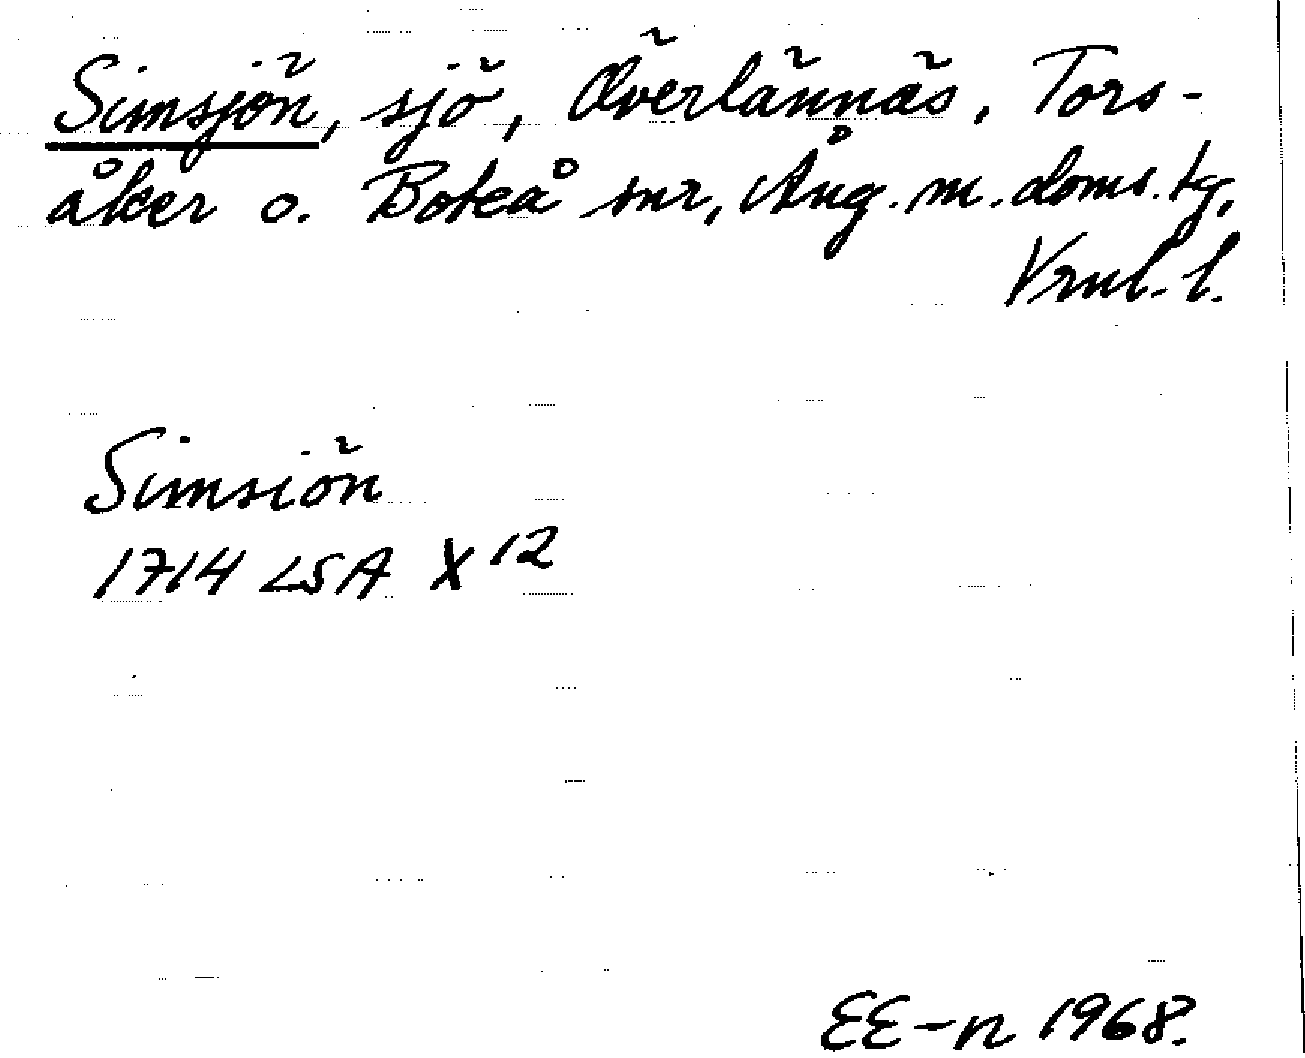 Simsjön, sjö, Överlännäs, Tors-
åker o. Boteå snr, Ång. m. doms. tg,
Vrnl. l.
Simsiön
1714 LSA X 12
EE-n 1968.